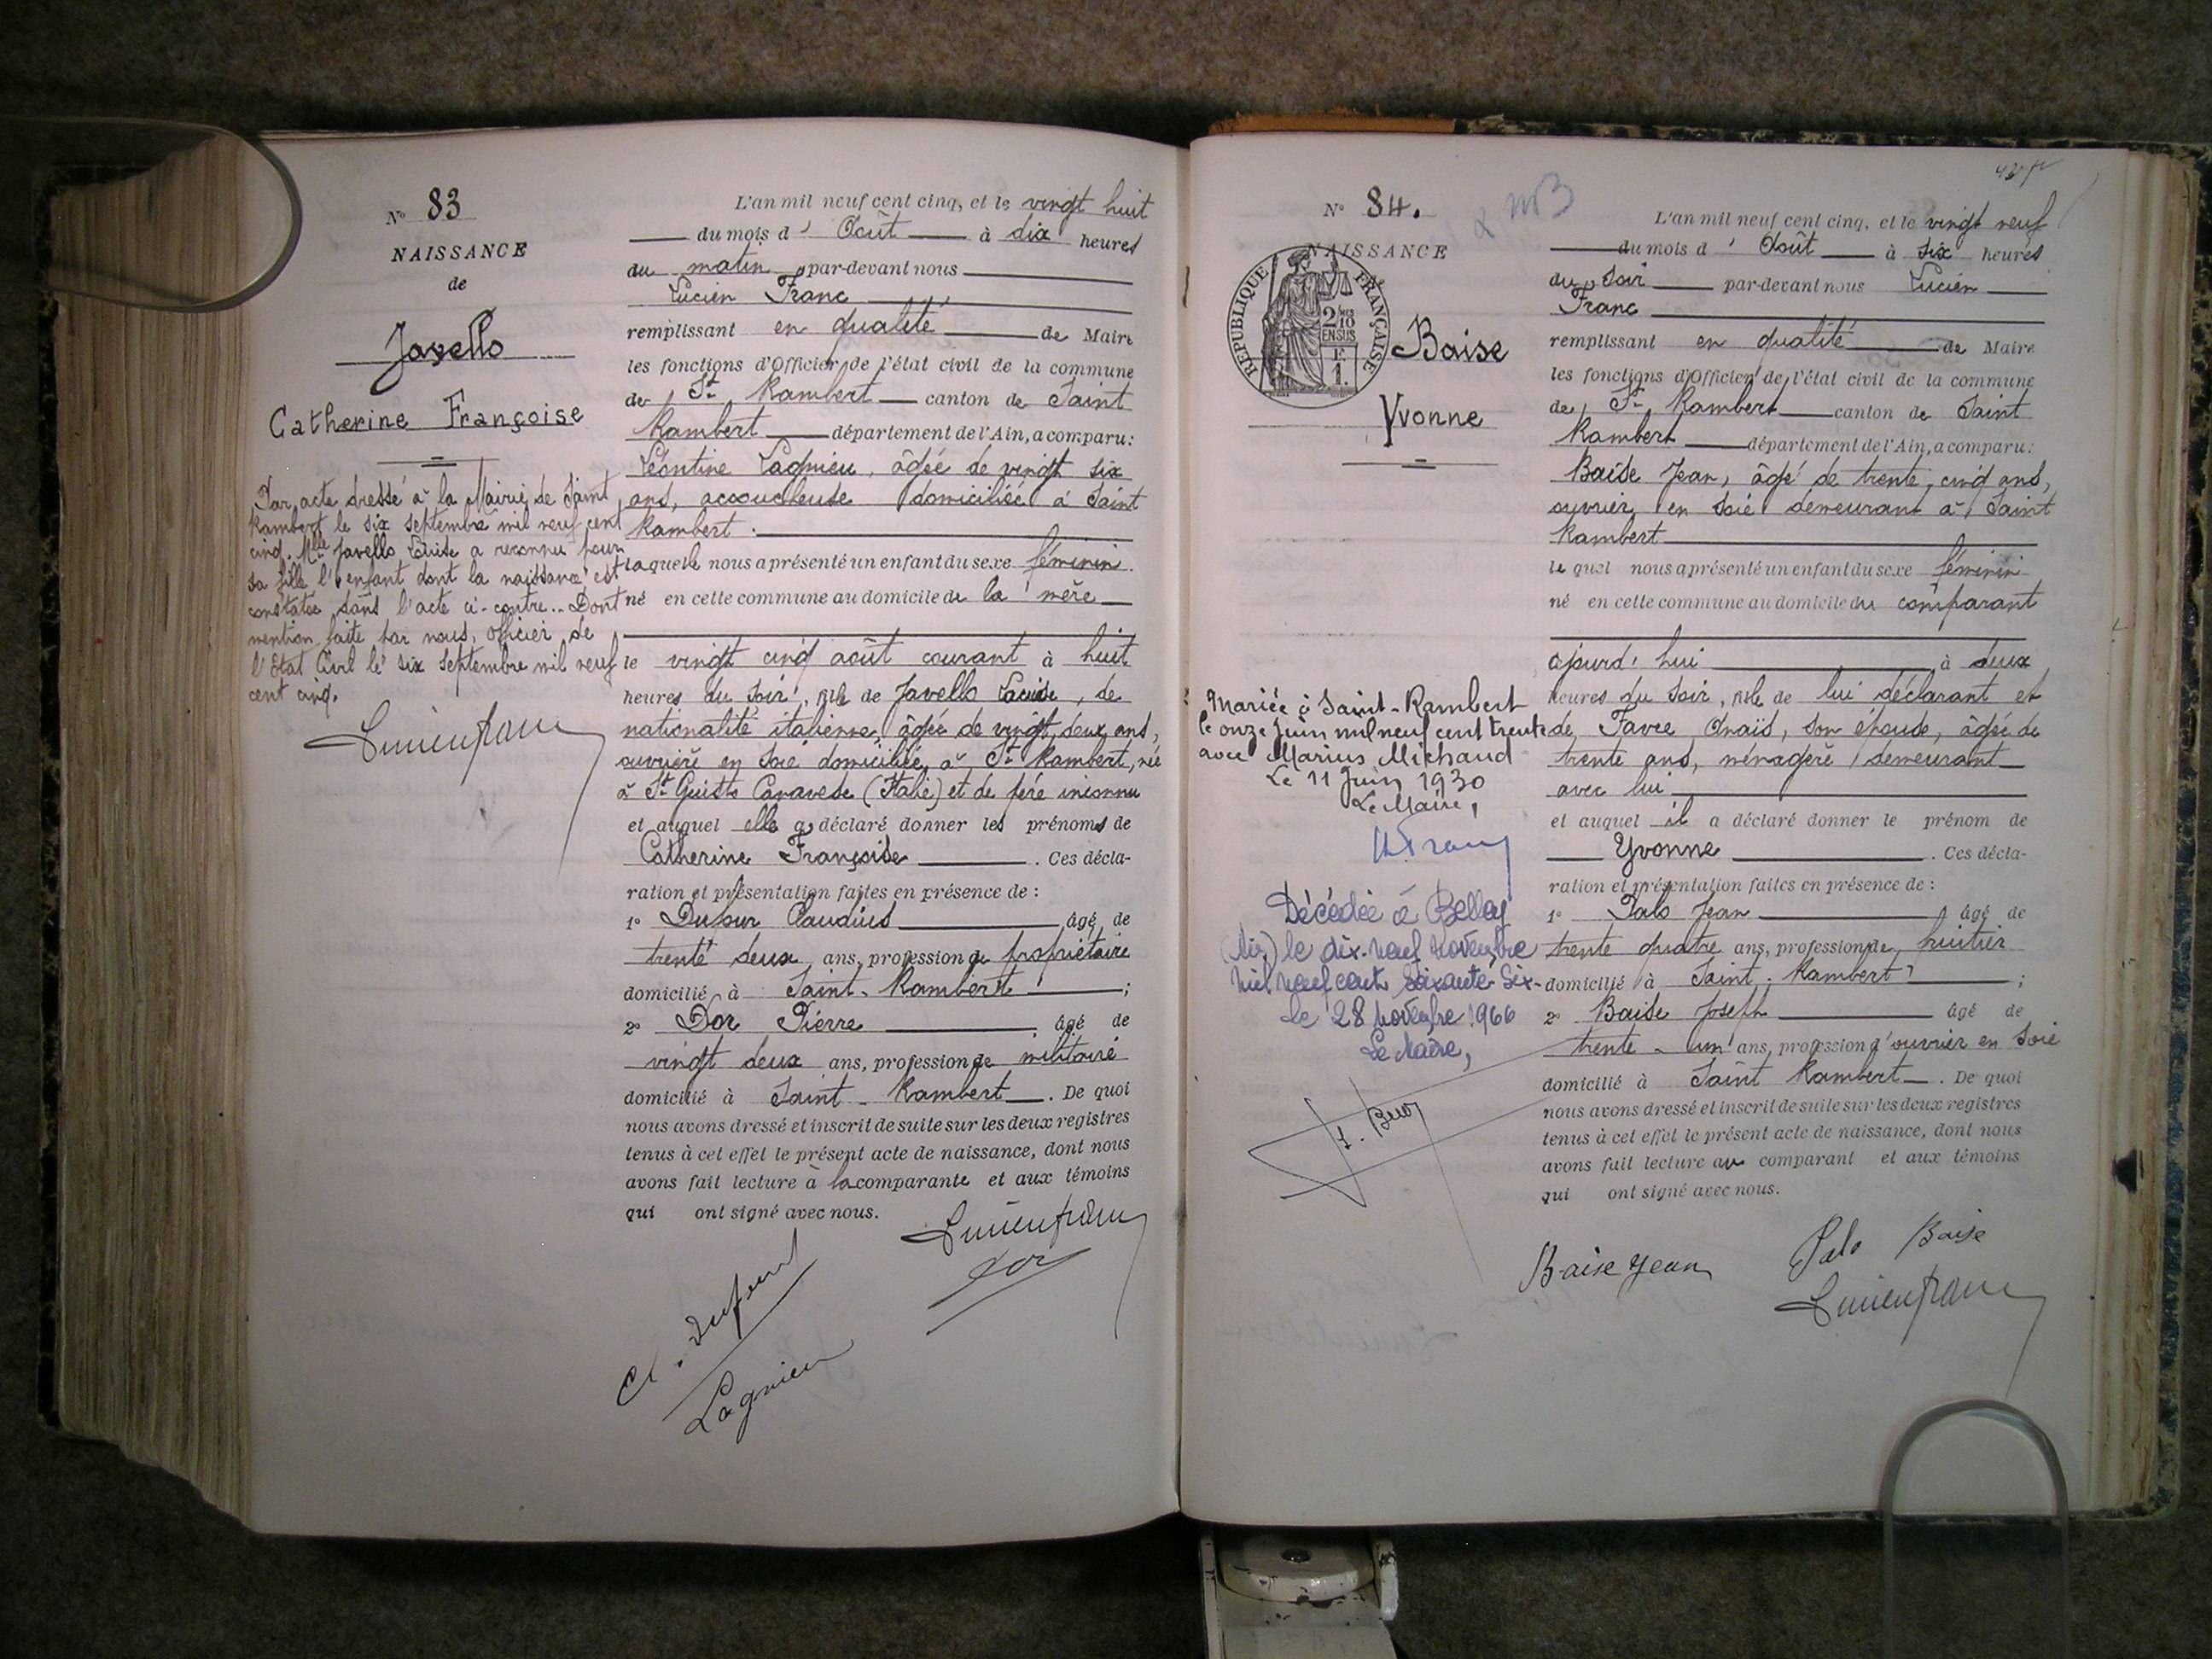 N° 83
NAISSANCE
de
Javello
Catherine Françoise
Par acte dressé à la Mairie de Saint
Rambert le six septembre mil neuf cent
cinq. Mlle Javello Louise a reconnu pour
sa fille l'enfant dont la naissance est
constatée dans l'acte ci-contre.. Dont
mention faite par nous, officier de
l'Etat Civil le six septembre mil neuf
cent cinq.
Lucien Franc
L'an mil neuf cent cinq, et le vingt huit
du mois d' Août à dix heures
du matin par-devant nous
Lucien Franc
remplissant en qualité de Maire
les fonctions d'Officier de l'état civil de la commune
de St Rambert canton de Saint
Rambert département de l'Ain, a comparu:
Léontine Lagnieu, âgée de vingt six
ans, accoucheuse domiciliée à Saint
Rambert.
laquelle nous a présenté un enfant du sexe féminin.
né en cette commune au domicile de la mère
le vingt cinq août courant à huit
heures du soir, fille de Javello Louise, de
nationalité italienne, âgée de vingt deux ans,
ouvrière en soie domiciliée à St Rambert, née
à St Guisto Canavese (Italie) et de père inconnu
et auquel elle a déclaré donner les prénoms de
Catherine Françoise . Ces décla-
ration et présentation faites en présence de :
1° Dufour Claudius âgé de
trente deux ans, profession de propriétaire
domicilié à Saint-Rambert ;
2° Dor Pierre âgé de
vingt deux ans, profession de militaire
domicilié à Saint-Rambert . De quoi
nous avons dressé et inscrit de suite sur les deux registres
tenus à cet effet le présent acte de naissance, dont nous
avons fait lecture à la comparante et aux témoins
qui ont signé avec nous.
Lucien Franc
Dor
Cl. Dufour
Lagnieu
N° 84.
NAISSANCE
REPUBLIQUE FRANÇAISE
2/10
EN SUS
F.
1.
Baise
Yvonne
Mariée à Saint-Rambert
le onze Juin mil neuf cent trente
avec Marius Michaud
Le 11 Juin 1930
Le Maire,
Décédée à Belley
(Ain) le dix-neuf novembre
mil neuf cent soixante-six-
le 28 novembre 1966
Le Maire,
L'an mil neuf cent cinq, et le vingt neuf
du mois d' Août à six heures
du soir par-devant nous Lucien
Franc
remplissant en qualité de Maire
les fonctions d'Officier de l'état civil de la commune
de St Rambert canton de Saint
Rambert département de l'Ain, a comparu:
Baise Jean, âgé de trente cinq ans,
ouvrier en soie demeurant à Saint
Rambert
lequel nous a présenté un enfant du sexe féminin
né en cette commune au domicile du comparant
ajourd'hui à deux
heures du soir, fille de lui déclarant et
de Favre Anaïs, son épouse, âgée de
trente ans, ménagère demeurant
avec lui
et auquel il a déclaré donner le prénom de
Yvonne . Ces décla-
ration et présentation faites en présence de :
1° Palo Jean âgé de
trente quatre ans, profession de huitier
domicilié à Saint-Rambert ;
2° Baise Joseph âgé de
trente-un ans, profession d'ouvrier en soie
domicilié à Saint Rambert . De quoi
nous avons dressé et inscrit de suite sur les deux registres
tenus à cet effet le présent acte de naissance, dont nous
avons fait lecture au comparant et aux témoins
qui ont signé avec nous.
Baise Jean Palo Baise
Lucien Franc